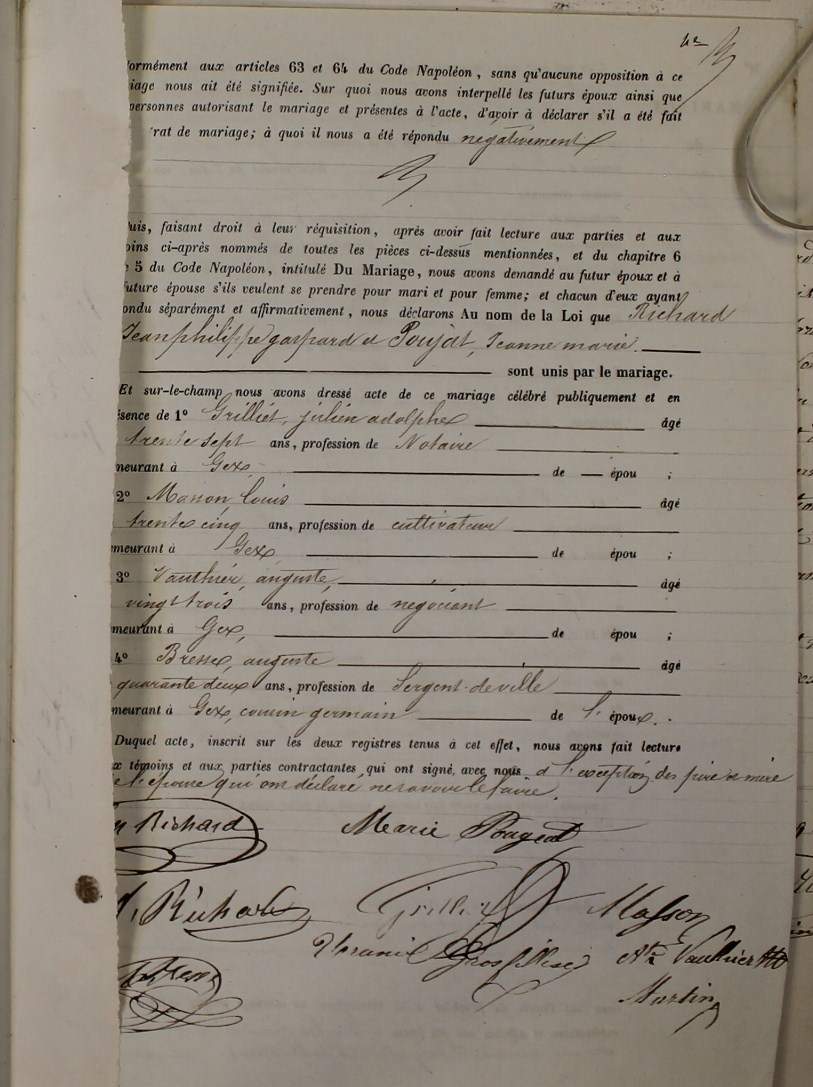 formément aux articles 63 et 64 du Code Napoléon, sans qu'aucune opposition à ce
riage nous ait été signifiée. Sur quoi nous avons interpellé les futurs époux ainsi que
personnes autorisant le mariage et présentes à l'acte, d'avoir à déclarer s'il a été fait
rat de mariage; à quoi il nous a été répondu négativement
uis, faisant droit à leur réquisition, après avoir fait lecture aux parties et aux
oins ci-après nommés de toutes les pièces ci-dessus mentionnées, et du chapitre 6
5 du Code Napoléon, intitulé Du Mariage, nous avons demandé au futur époux et à
future épouse s'ils veulent se prendre pour mari et pour femme; et chacun d'eux ayant
ondu séparément et affirmativement, nous déclarons Au nom de la Loi que Richard
Jean philippe gaspard et Poujat, Jeanne marie.
sont unis par le mariage.
Et sur-le-champ nous avons dressé acte de ce mariage célébré publiquement et en
ésence de 1º Grilliet, julien adolphe âgé
trente sept ans, profession de Notaire
meurant à Gex, de épou ;
2º Masson, Louis âgé
trente cinq ans, profession de cultivateur
meurant à Gex de épou ;
3º Vauthier, auguste, âgé
vingt trois ans, profession de négociant
meurant à Gex, de épou ;
4º Bresse, auguste âgé
quarante deux ans, profession de Sergent-de ville
meurant à Gex, cousin germain de l'épouse.
Duquel acte, inscrit sur les deux registres tenus à cet effet, nous avons fait lecture
x témoins et aux parties contractantes qui ont signé avec nous à l'exception des père et mère
de l'épouse qui ont déclaré ne savoir le faire.
Richard Marie Poujat
Richard Grilliet Masson
Grosfilley Ate Vauthier
Martin